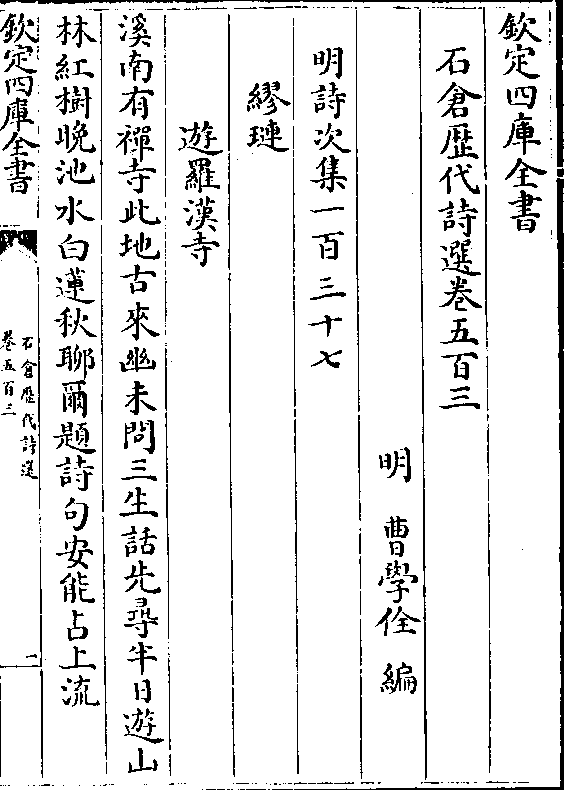 欽定四庫全書
石倉歴代詩選卷五百三
明 曹學佺 編
明詩次集一百三十七
繆璉
遊羅漢寺
溪南有禪寺此地古來幽未問三生話先尋半日遊山
林紅樹晚池水白蓮秋聊爾題詩句安能占上流
欽定四庫全書
石倉歴代詩選
卷五百三
一